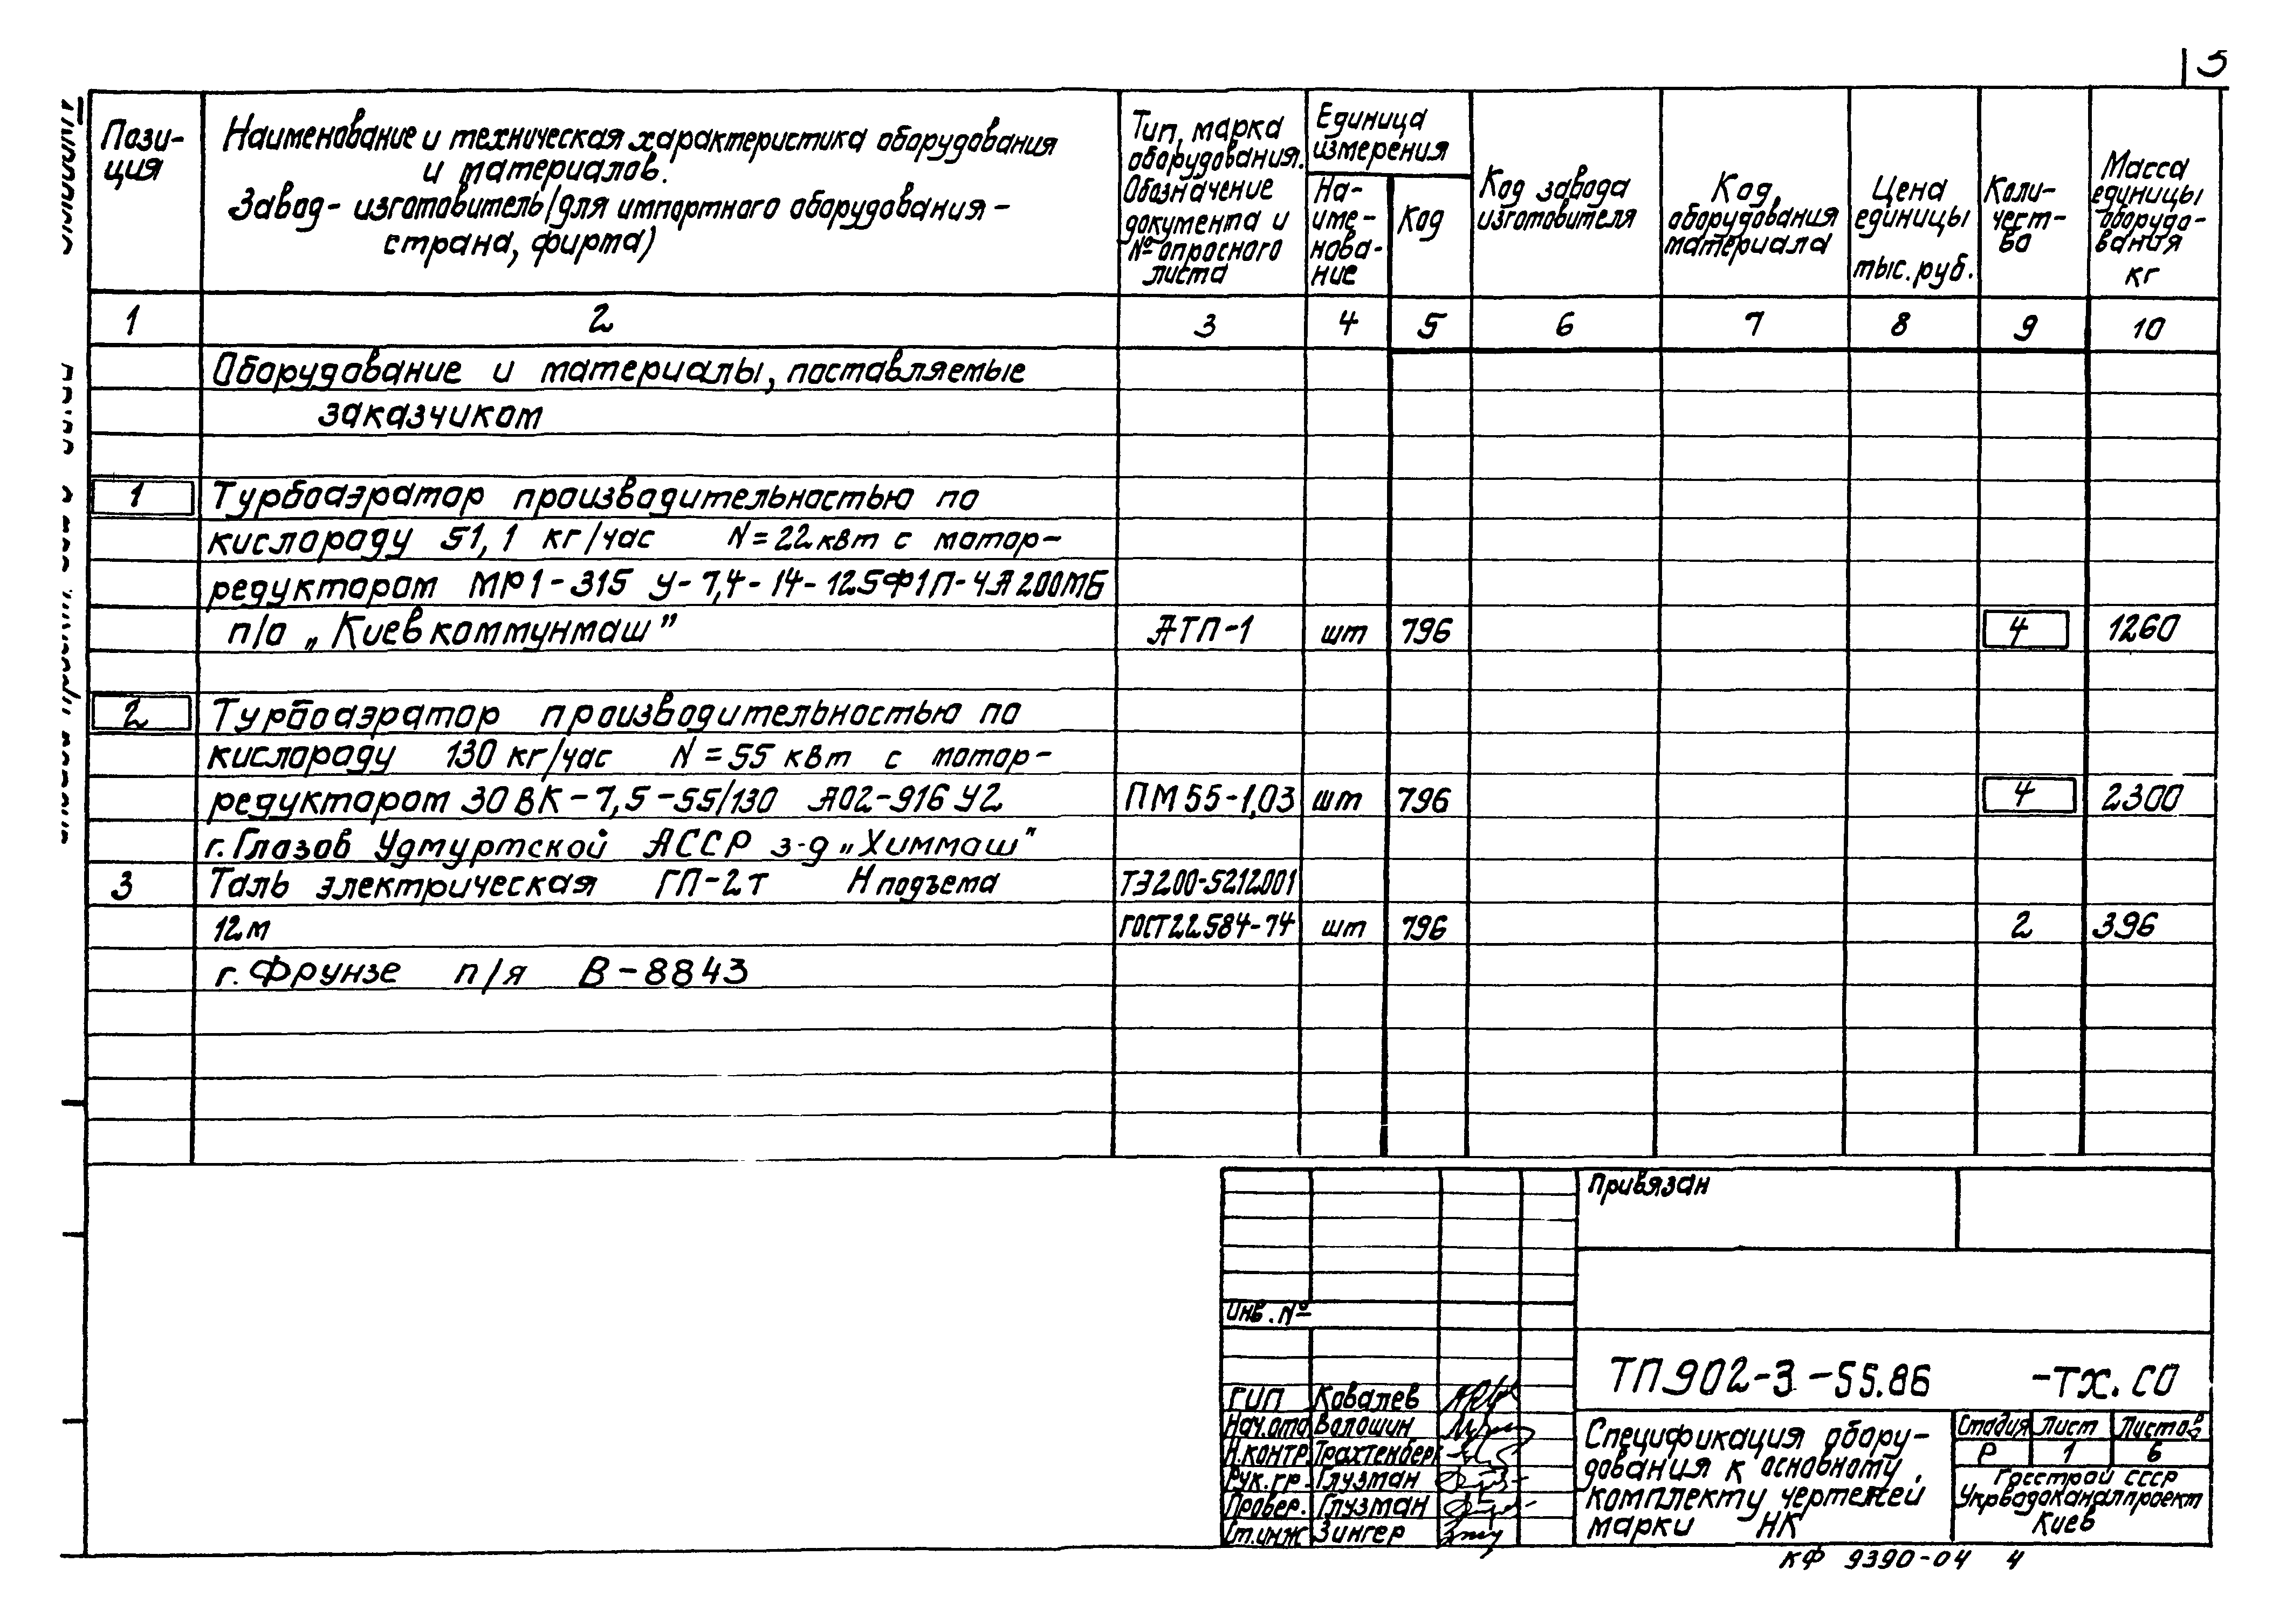 3
Пози-
ция
Наименование и техническая характеристика оборудования
и материалов.
Завод-изготовитель (для импортного оборудования -
страна, фирма)
Тип, марка
оборудования.
Обозначение
документа и
№ опросного
листа
Единица
измерения
На-
име-
нова-
ние
Код
Код завода
изготовителя
Код
оборудования
материала
Цена
единицы
тыс. руб.
Коли-
чест-
во
Масса
единицы
оборудо-
вания
кг
1 2 3 4 5 6 7 8 9 10
Оборудование и материалы, поставляемые
заказчиком
1 Турбоаэратор производительностью по
кислороду 51,1 кг/час N=22 квт с мотор-
редуктором МР1-315 У-7,4-14-125Ф1П-4А200М6
п/о „Киевкоммунмаш" АТП-1 шт 796 4 1260
2 Турбоаэратор производительностью по
кислороду 130 кг/час N=55 квт с мотор-
редуктором 30 ВК-7,5-55/130 А02-916 У2 ПМ 55-1,03 шт 796 4 2300
г. Глазов Удмуртской АССР з-д „Химмаш"
3 Таль электрическая ГП-2т Н подъема ТЭ200-5212001
12м ГОСТ 22584-74 шт 796 2 396
г. Фрунзе п/я В-8843
Привязан
Инв. №
ТП 902-3-55.86 -ТХ. СО
ГИП Ковалев
Нач.отд Волошин
Н.контр. Трахтенберг
Рук.гр. Глузман
Провер. Глузман
Ст.инж Зингер
Спецификация обору-
дования к основному
комплекту чертежей
марки НК
Стадия Лист Листов
Р 1 6
Госстрой СССР
Укрводоканалпроект
Киев
КФ 9390-04 4